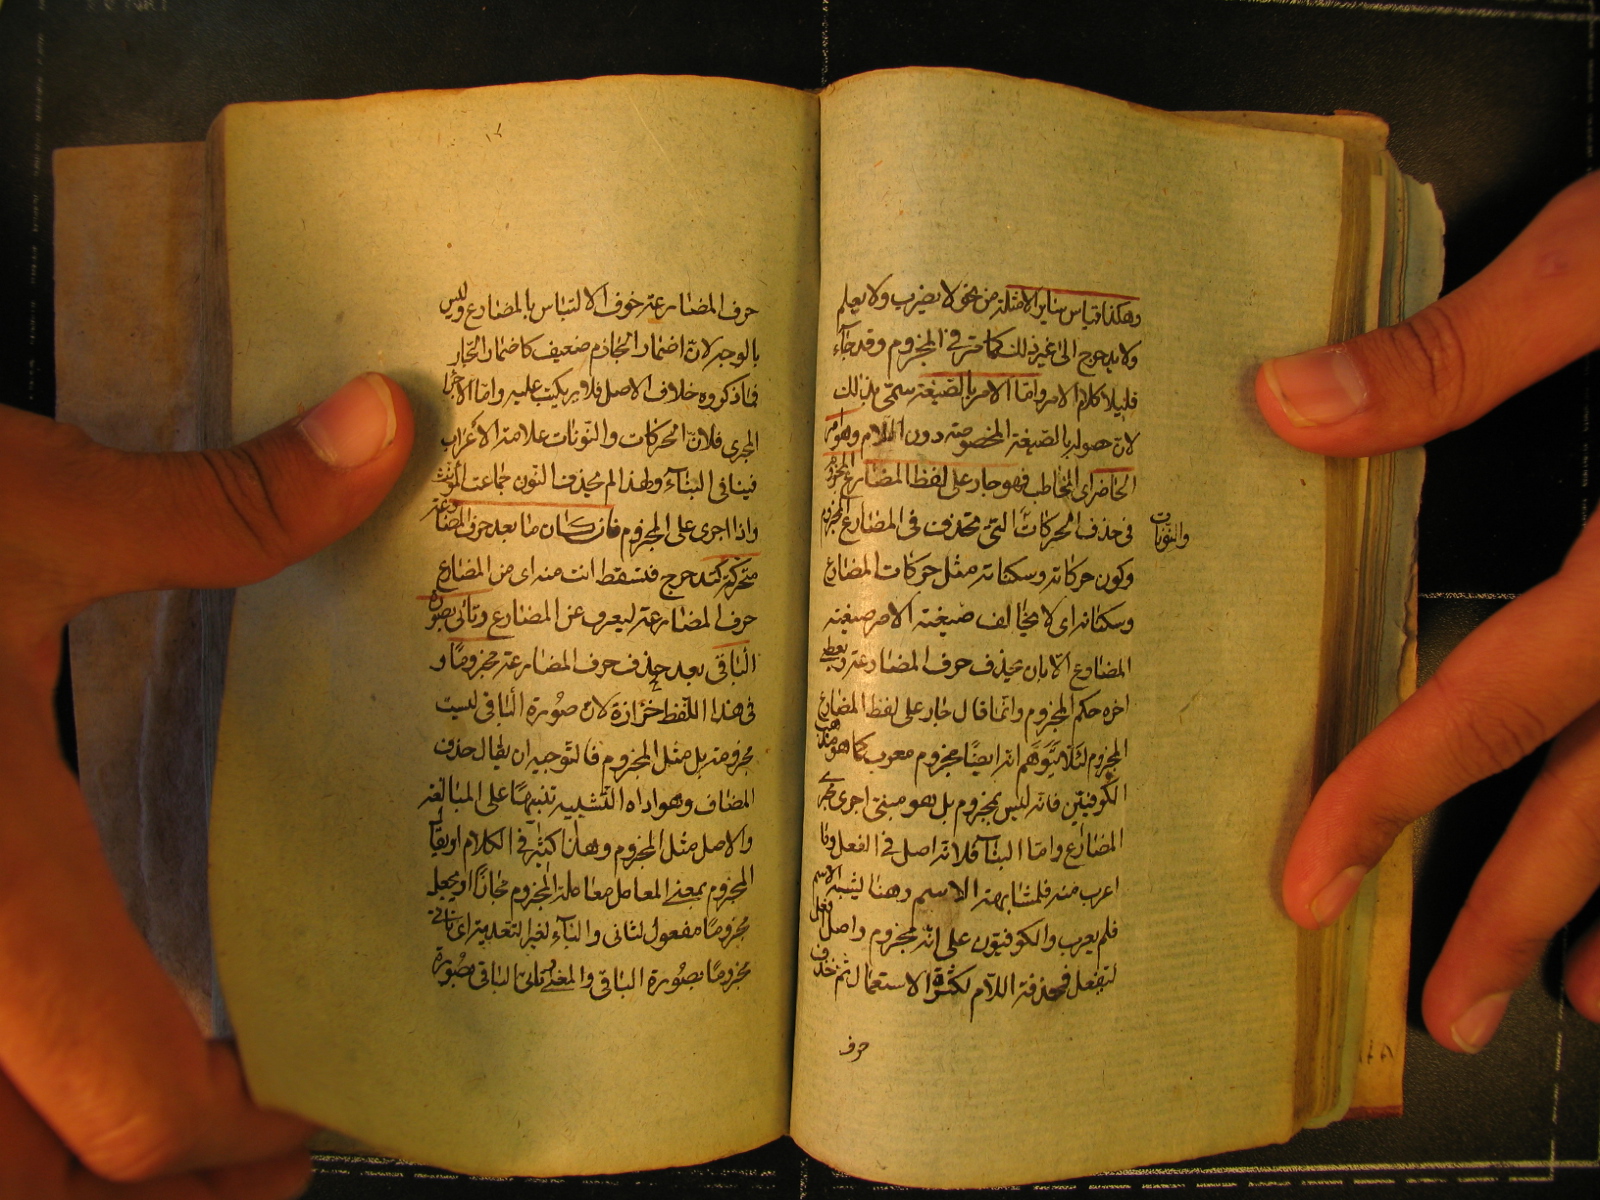 وهكذا قياس سائر الامثلة من نحو لا يضرب ولا يعلم
ولا يدحرج الى غير ذلك كما مر في المجزوم وقد جاء
قليلا كلام الامر واما الامر بالصيغة سمي بذلك
لان حصوله بالصيغة المخصوصة دون اللام وهو امر
الحاضر اى المخاطب فهو جار على لفظ المضارع المجزوم
في حذف الحركات التى تحذف في المضارع المجزوم
والنونات
وكون حركاته وسكناته مثل حركات المضارع
وسكناته اى لا يخالف صيغة الامر صيغة
المضارع الا بان يحذف حرف المضارعة ويعطى
اخره حكم المجزوم وانما قال جار على لفظ المضارع
المجزوم لئلا يتوهم انه ايضا مجزوم معرب كما هو مذهب
الكوفيين فانه ليس بمجزوم بل هو مبنى اجرى مجرى
المضارع واما البناء فلانه اصل في الفعل وما
اعرب منه فلمشابهة الاسم وهذا لم يشبه الاسم
فلم يعرب والكوفيون على انه مجزوم واصل افعل
لتفعل فحذفت اللام لكثرة الاستعمال ثم حذف
حرف
حرف المضارعة خوف الالتباس بالمضارع وليس
بالوجه لان اضمار الجازم ضعيف كاضمار الجار
فما ذكروه خلاف الاصل فلا يرتكب عليه واما الاجراء
المجرى فلان الحركات والنونات علامة الاعراب
فينافى البناء ولهذا لم يحذف النون جماعت المؤنث
واذا اجرى على المجزوم فان كان ما بعد حرف المضارعة
متحركة كتدحرج فتسقط انت منه اى من المضارع
حرف المضارعة ليعرف عن المضارع وتأتى بصورة
الباقى بعد حذف حرف المضارعة مجزوما و
في هذا اللفظ حزازة لان صورة الباقى ليست
مجزومة بل مثل المجزوم فالتوجيه ان يقال حذف
المضاف وهو اداة التشبيه تنبيها على المبالغة
والاصل مثل المجزوم وهذا كثير في الكلام او يقال
المجزوم بمعنى المعامل معاملة المجزوم مجازا او يجعل
مجزوما مفعول لثانى والباء لغير التعدية اى تأتى
مجزوما بصورة الباقى والمعنى تأتى الباقى بصورة